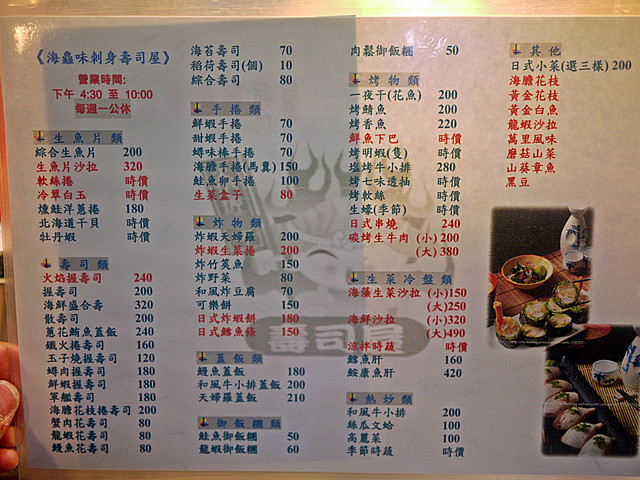 《海鱻味刺身壽司屋》
營業時間:
下午 4:30 至 10:00
每週一公休
生魚片類
綜合生魚片 200
生魚片沙拉 320
軟絲捲 時價
冷翠白玉 時價
燻鮭洋蔥捲 180
北海道干貝 時價
牡丹蝦 時價
壽司類
火焰握壽司 240
握壽司 200
海鮮盛合壽 320
散壽司 200
蔥花鮪魚蓋飯 240
鐵火捲壽司 160
玉子燒握壽司 120
蟳肉握壽司 180
鮮蝦握壽司 180
軍艦壽司 180
海膽花枝捲壽司 200
蟹肉花壽司 80
龍蝦花壽司 80
鰻魚花壽司 80
海苔壽司 70
稻荷壽司(個) 10
綜合壽司 80
手捲類
鮮蝦手捲 70
甜蝦手捲 70
蟳味棒手捲 70
海膽手捲(馬糞) 150
鮭魚卵手捲 100
生菜盒子 80
炸物類
炸蝦天婦羅 200
炸蝦生菜捲 200
炸竹筴魚 150
炸野菜 80
和風炸豆腐 70
可樂餅 150
日式炸蝦餅 180
日式鱈魚條 150
蓋飯類
鰻魚蓋飯 180
和風牛小排蓋飯 200
天婦羅蓋飯 210
御飯糰類
鮭魚御飯糰 50
龍蝦御飯糰 60
肉鬆御飯糰 50
烤物類
一夜干(花魚) 200
烤鯖魚 200
烤香魚 220
鮮魚下巴 時價
烤明蝦(隻) 時價
塩烤牛小排 280
烤七味透抽 時價
烤軟絲 時價
生蠔(季節) 時價
日式串燒 240
碳烤生牛肉 (小)200
(大)380
生菜冷盤類
海藻生菜沙拉 (小)150
(大)250
海鮮沙拉 (小)320
(大)490
涼拌時蔬 時價
鱈魚肝 160
鮟康魚肝 420
熱炒類
和風牛小排 200
絲瓜文蛤 100
高麗菜 100
季節時蔬 時價
其他
日式小菜(選三樣) 200
海膽花枝
黃金花枝
黃金白魚
龍蝦沙拉
萬里風味
蘑菇山菜
山葵章魚
黑豆
壽司屋